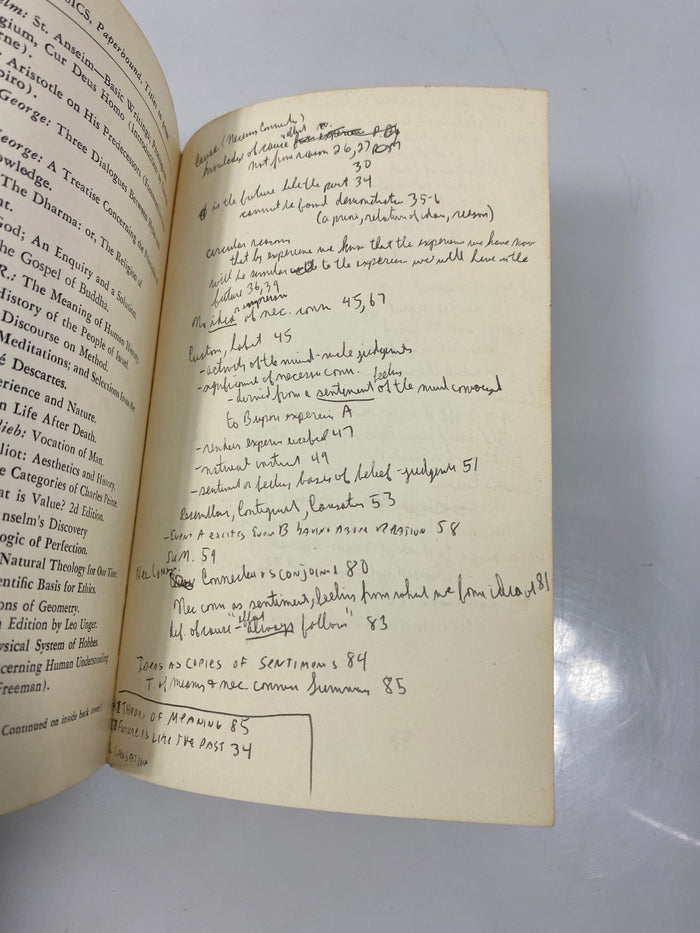 SICS, Paperbound. Titles in
elm: St. Anselm—Basic Writings: Proslogium,
gium, Cur Deus Homo
rne).
Aristotle on His Predecessors
piro).
George: Three Dialogues Between
George: A Treatise Concerning the
nowledge.
The Dharma: or, The Religion of
nt.
God; An Enquiry and a Solution.
The Gospel of Buddha.
R.: The Meaning of Human History.
History of the People of Israel.
Discourse on Method.
Meditations; and Selections from the
é Descartes.
erience and Nature.
n Life After Death.
lieb: Vocation of Man.
lliot: Aesthetics and History.
e Categories of Charles Peirce.
at is Value? 2d Edition.
nselm's Discovery
ogic of Perfection.
Natural Theology for Our Time.
entific Basis for Ethics.
ons of Geometry.
n Edition by Leo Unger.
ysical System of Hobbes.
cerning Human Understanding
Freeman).
(Continued on inside back cover)
Cause (Necess Connects)
knowledge of cause
not from reason 26, 27
30
is the future like the past 34
cannot be found demonstrate 35-6
(a priori, relation of ideas, reason)
circular reason
that by experience we know that the experience we have now
will be similar to the experience we will have in the
future 36, 39
No idea of nec. conn 45, 67
Custom, habit 45
- activity of the mind - make judgments
- significance of necess conn.
feeling
- derived from a sentiment of the mind
to B upon experience A
- renders experience useful 47
- natural instinct 49
- sentiment or feeling basis of belief - judgments 51
Resemblan, Contiguit, Causation 53
- Event A excites Event B having ration 58
SUM. 59
Nec Conn
Connected vs conjoined 80
Nec conn as sentiment, feeling from what we form idea of 81
effect
def. of cause - "always follow" 83
IDEAS AS COPIES OF SENTIMENTS 84
T. of meaning & nec connon Summary 85
THEORY OF MEANING 85
FUTURE IS LIKE THE PAST 34
CAUSATION